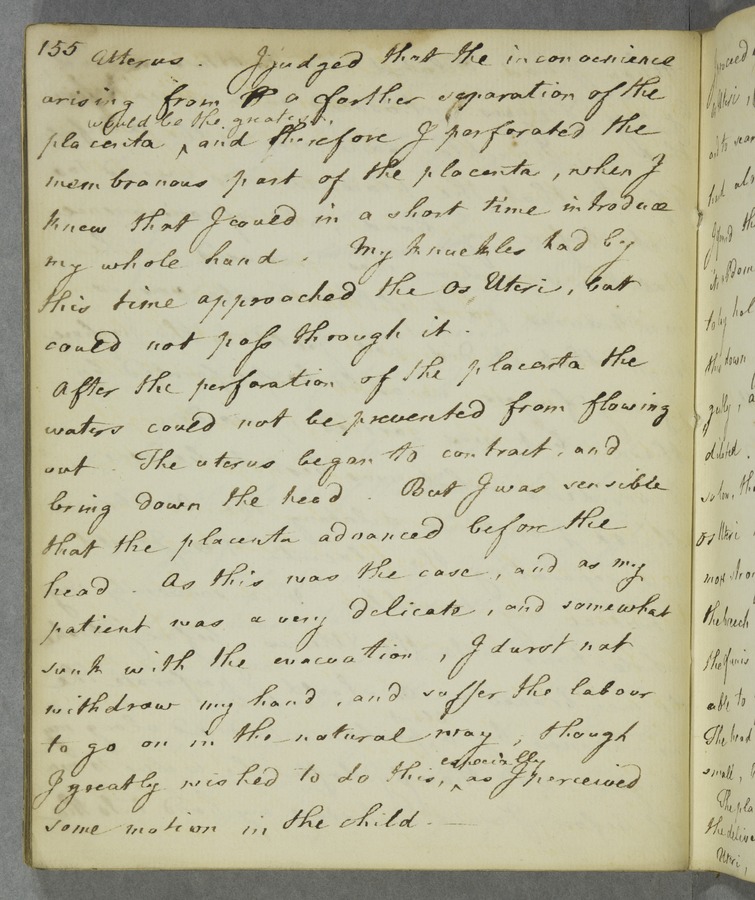 155 Utterus. I judged that the inconvenience
arising from a farther separation of the
would be the greatest,
placenta ‸ and therefore I perforated the
membranous part of the placenta, when I
knew that I could in a short time introduce
my whole hand. My knuckles had by
this time approached the Os Uteri, but
could not pass through it.
After the perforation of the placenta the
waters could not be prevented from flowing
out. The uterus began to contract, and
bring down the head. But I was sensible
that the placenta advanced before the
head. As this was the case, and as my
patient was a very delicate, and somewhat
sunk with the evacuation, I durst not
withdraw my hand, and suffer the labour
to go on in the natural way, though
especially
I greatly wished to do this, ‸ as I perceived
some motion in the child. —
Uteri
Os Uteri
the breech
able to
The head
small,
Uteri,